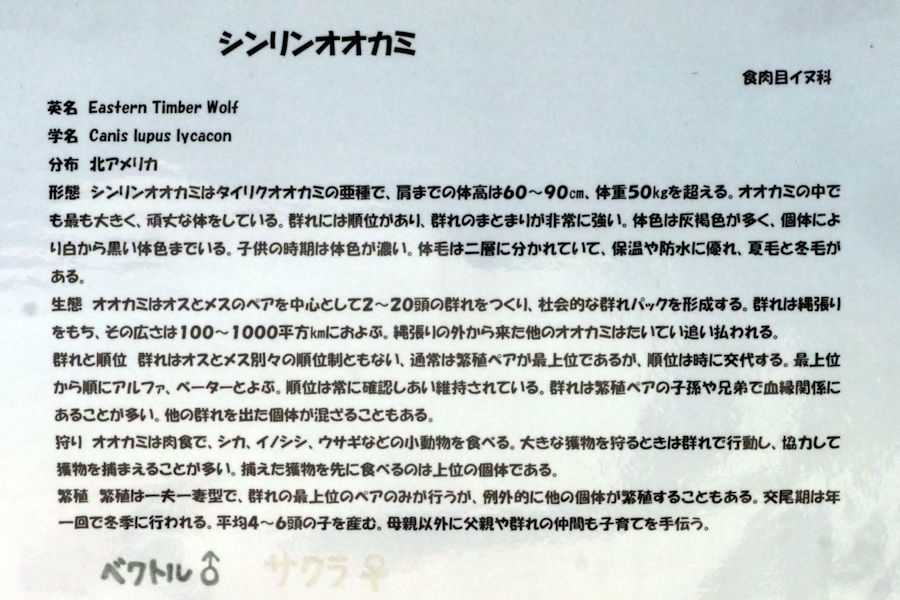 シンリンオオカミ
食肉目イヌ科
英名 Eastern Timber Wolf
学名 Canis lupus lycacon
分布 北アメリカ
形態 シンリンオオカミはタイリクオオカミの亜種で、肩までの体高は60～90㎝、体重50㎏を超える。オオカミの中で
も最も大きく、頑丈な体をしている。群れには順位があり、群れのまとまりが非常に強い。体色は灰褐色が多く、個体によ
り白から黒い体色までいる。子供の時期は体色が濃い。体毛は二層に分かれていて、保温や防水に優れ、夏毛と冬毛が
ある。
生態 オオカミはオスとメスのペアを中心として2～20頭の群れをつくり、社会的な群れパックを形成する。群れは縄張り
をもち、その広さは100～1000平方㎞におよぶ。縄張りの外から来た他のオオカミはたいてい追い払われる。
群れと順位 群れはオスとメス別々の順位制ともない、通常は繁殖ペアが最上位であるが、順位は時に交代する。最上位
から順にアルファ、ベーターとよぶ。順位は常に確認しあい維持されている。群れは繁殖ペアの子孫や兄弟で血縁関係に
あることが多い。他の群れを出た個体が混ざることもある。
狩り オオカミは肉食で、シカ、イノシシ、ウサギなどの小動物を食べる。大きな獲物を狩るときは群れで行動し、協力して
獲物を捕まえることが多い。捕えた獲物を先に食べるのは上位の個体である。
繁殖 繁殖は一夫一妻型で、群れの最上位のペアのみが行うが、例外的に他の個体が繁殖することもある。交尾期は年
一回で冬季に行われる。平均4～6頭の子を産む。母親以外に父親や群れの仲間も子育てを手伝う。
ベクトル♂ サクラ♀